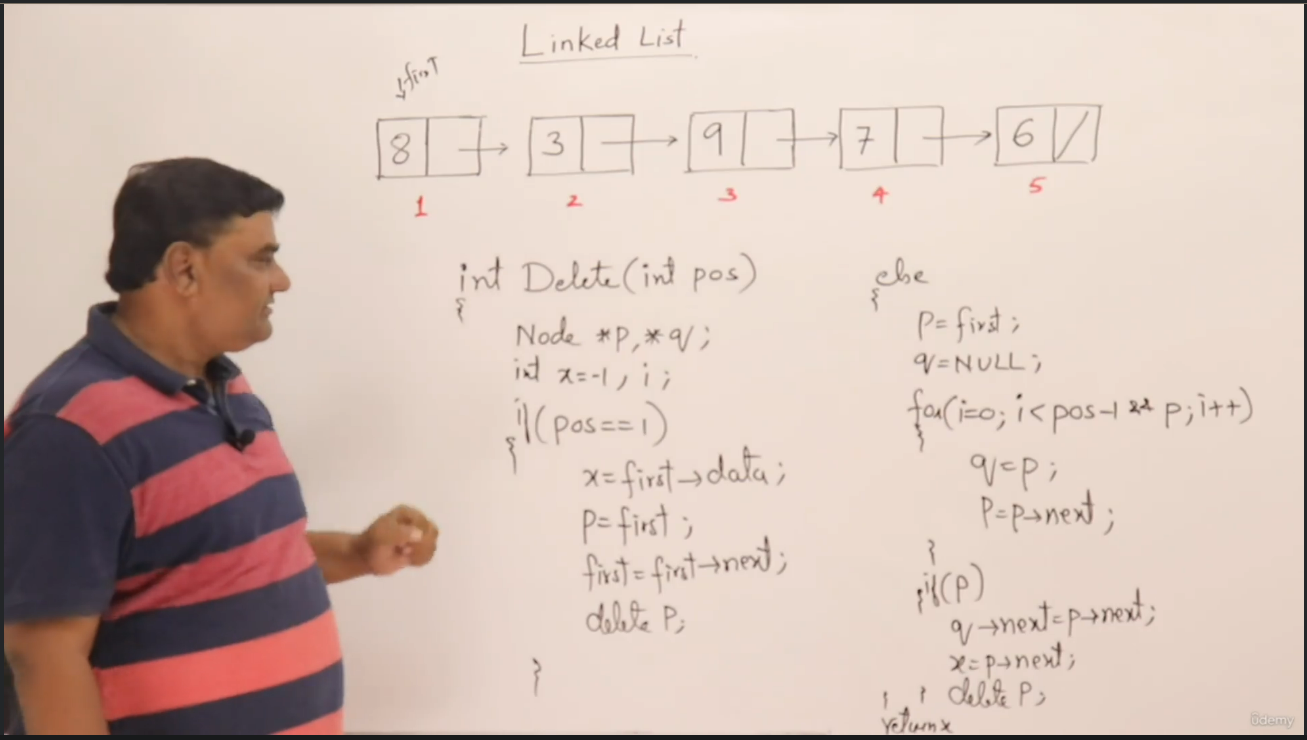 Linked List
first
8 3 9 7 6
1 2 3 4 5
int Delete(int pos)
{
Node *p, *q;
int x=-1, i;
if(pos==1)
{
x=first→data;
P=first;
first=first→next;
delete P;
}
else
{
P=first;
q=NULL;
for(i=0; i<pos-1 && p; i++)
{
q=p;
P=p→next;
}
if(P)
{
q→next=p→next;
x=p→next;
delete P;
} }
return x
ûdemy